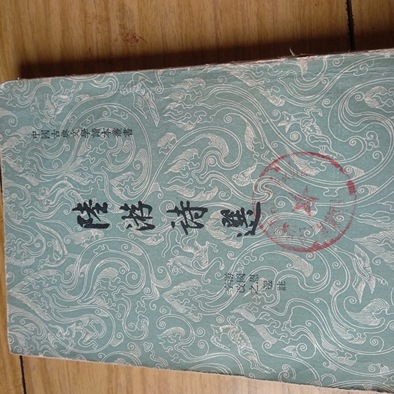 中國古典文學讀本叢書
陸游诗選
游國恩
李易選註